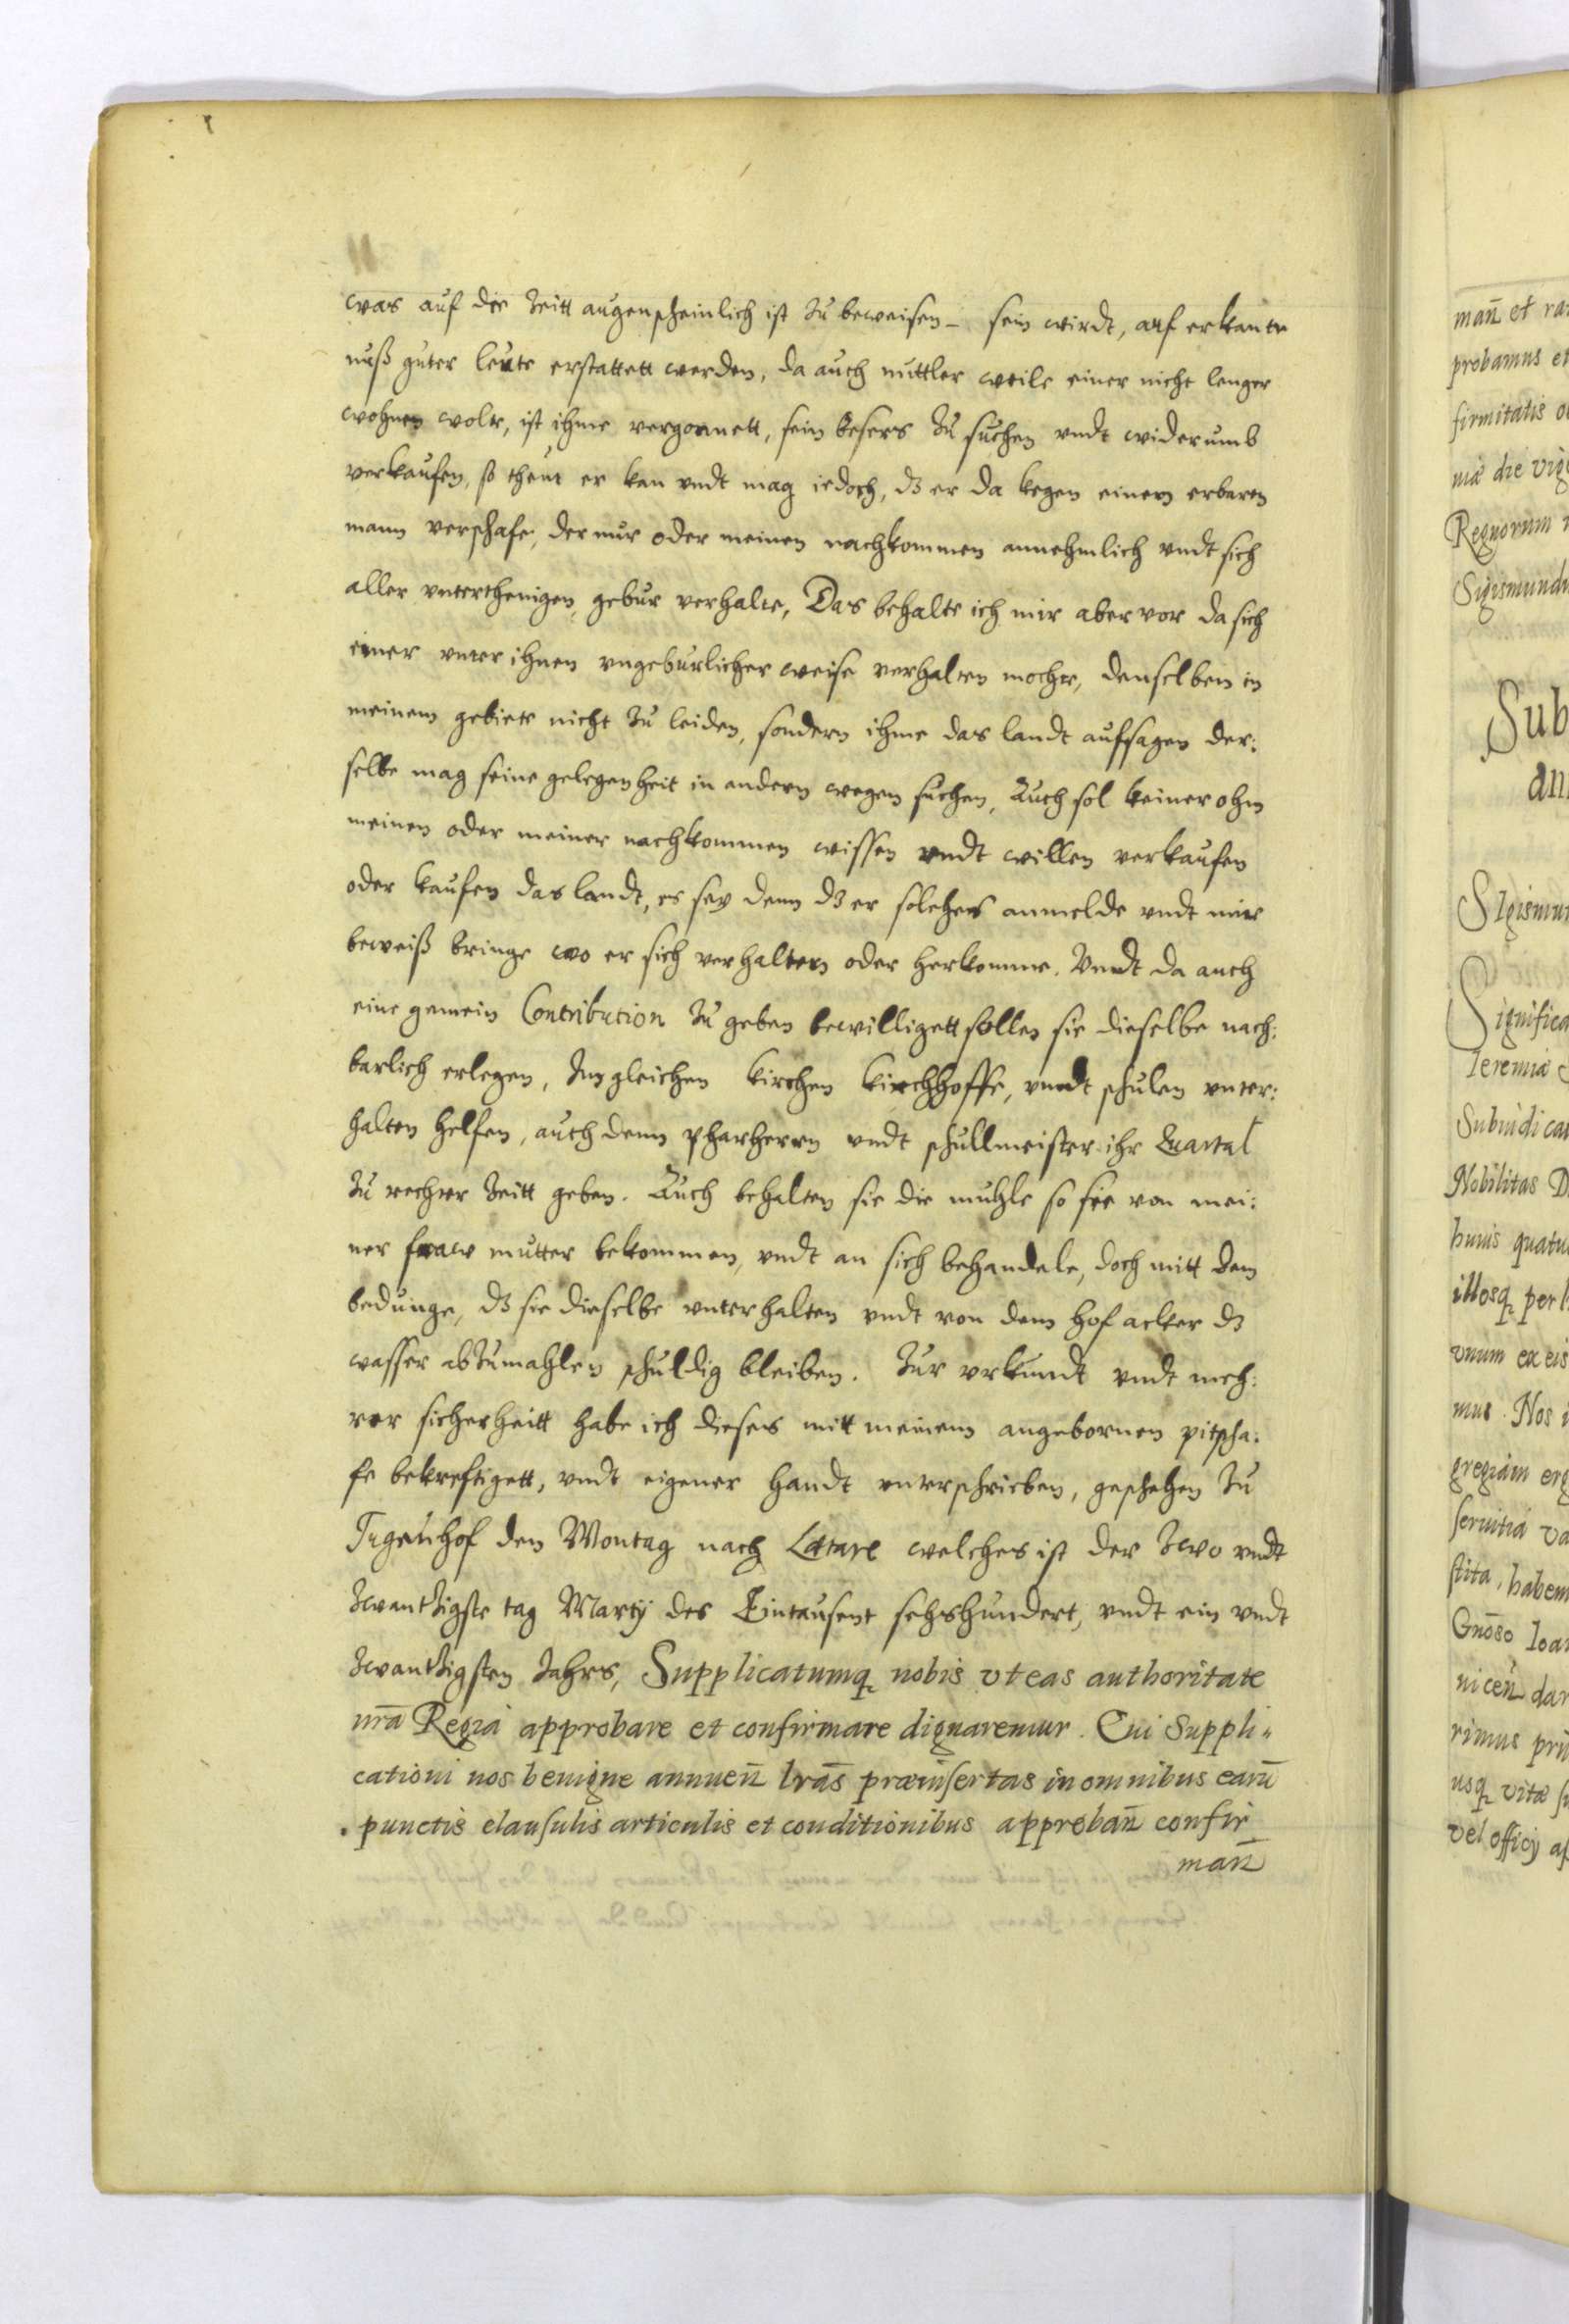 was auf die Zeitt augenscheinlich ist zu beweisen – sein wirdt, auf erkante
nuß guter leute erstattett werden, da auch mittler weile einer nicht lenger
wohnen wolte, ist ihme vergonnett, sein besers zu suchen vndt widerumb
verkaufen, so theur er kan vndt mag iedoch, dz er da kegen einen erbaren
mann verschafe, der mir oder meinen nachkommen annehmlich vndt sich
aller vnterthenigen gebur verhalte, Das behalte ich mir aber vor da sich
einer vnter ihnen vngeburlicher weise verhalten mochte, denselben in
meinem gebiete nicht zu leiden, sondern ihme das landt aufsagen der:
selbe mag seine gelegenheit in andern wegen suchen, Auch sol keiner ohn
meinen oder meiner nachkommen wissen vndt willen verkaufen
oder kaufen das landt, es sey denn dz er solches anmelde vndt mir
beweiß bringe wo er sich verhalten oder herkomme. Vndt da auch
eine gemein Contribution zu geben bewilligett sollen sie dieselbe nach:
barlich erlegen, Im gleichen kirchen kirchhoffe, vndt schulen vnter:
halten helfen, auch dem pfarherrn vndt schullmeister ihr Quartal
zu rechter Zeitt geben. Auch behalten sie die muhle so sie von mei:
ner fraw mutter bekommen, vndt an sich behandele, doch mitt dem
bedunge, dz sie dieselbe vnterhalten vndt von dem hof acker dz
wasser abzumahlen schuldig bleiben. Zur vrkundt vndt meh:
rer sicherheitt habe ich dieses mitt meinem angebornen pitscha:
fe bekreftigett, vndt eigener handt vnterschrieben, geschehen zu
Tigenhof den Montag nach Lætare welches ist der zwo vndt
zwantzigste tag Martij des Eintausent sechshundert, vndt ein vndt
zwantzigsten Jahrs, Supplicatumq nobis vt eas authoritate
nrã Regia approbare et confirmare dignaremur. Cui Suppli„
cationi nos benigne annuen̄ lrãs præinsertas in omnibus earū
punctis clausulis articulis et conditionibus approban̄ confir
man̄
man̄ et ra
probamus et
firmitatis
die
Regnorum
Sigismund
Sub
an
SIgismun
Significa
Ieremia
Nobilitas D
huius quatu
illosq per
vnum ex eis
mus. Nos
gregiam erg
seruitia va
stita, haben
Gnōso Ioa
rimus
usq vitæ
vel officij